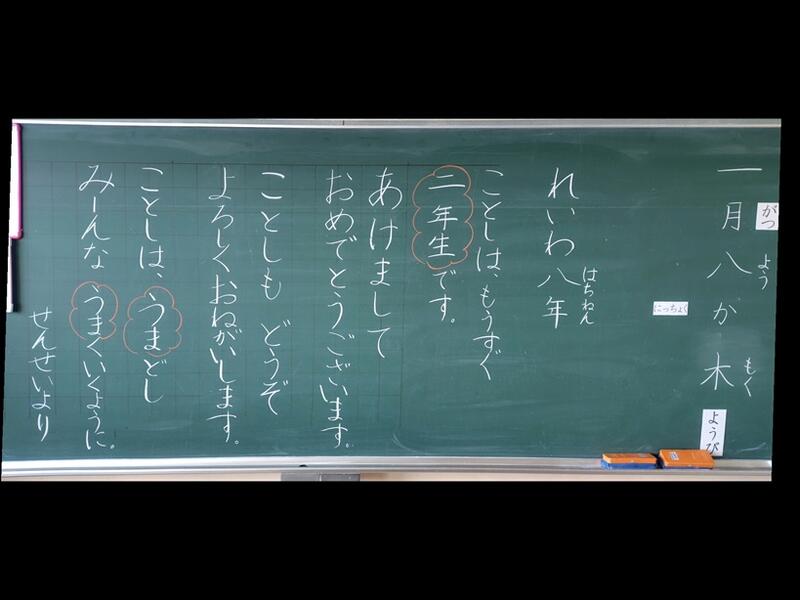 一月八か木ようび
がつ
よう
もく
にっちょく
れいわ八年
はちねん
ことしは、もうすぐ
二年生です。
あけまして
おめでとうございます。
ことしも どうぞ
よろしくおねがいします。
ことしは、うまどし
みーんな うまくいくように。
せんせいより